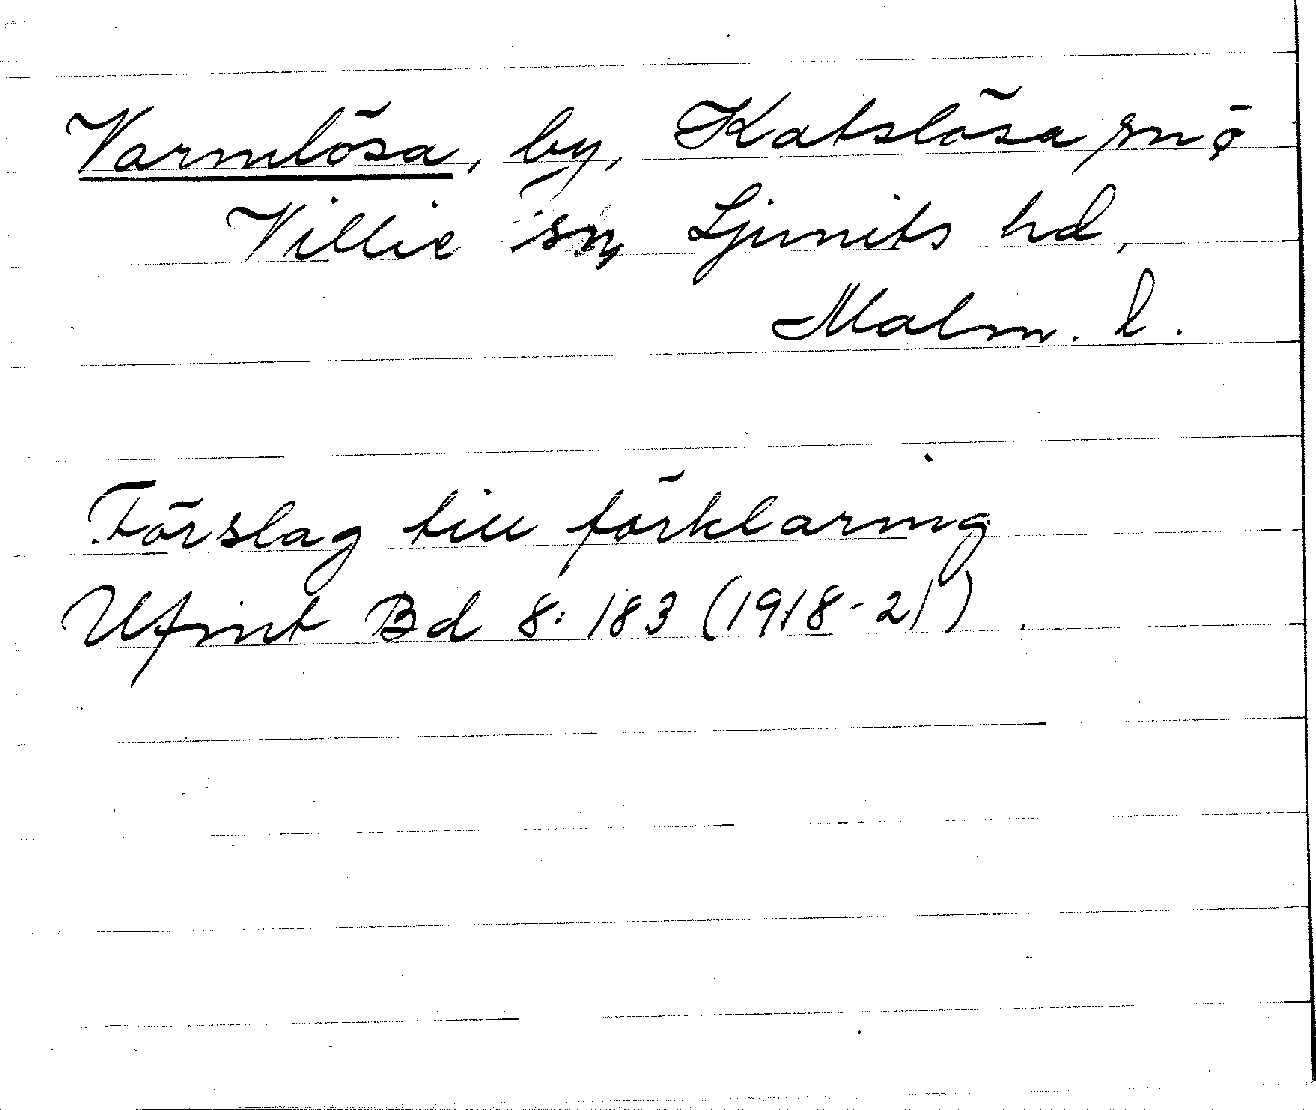 Varmlösa, by, Katslösa sn o
Villie sn, Ljunits hd,
Malm. l.
Förslag till förklaring
Ufmt Bd 8:183 (1918-21)